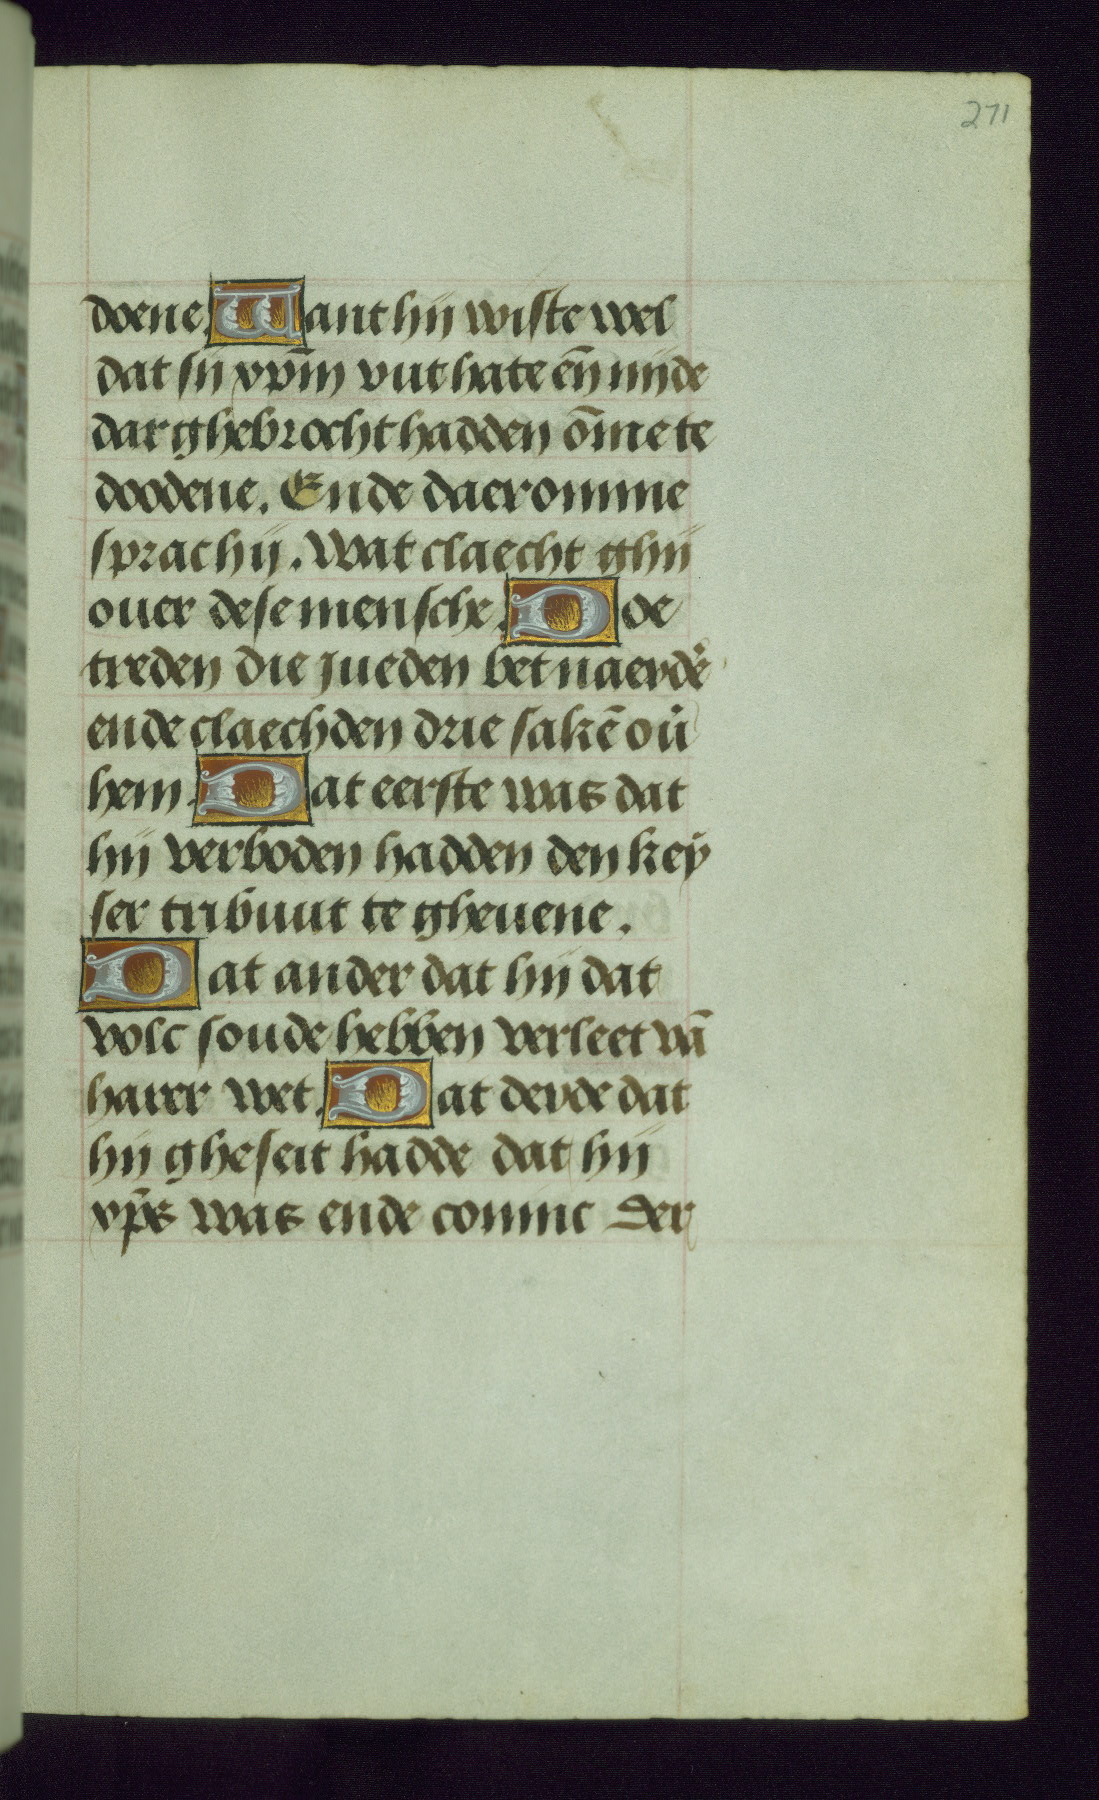 271
doene. Want hij wiste wel
dat sij xp̄m vut hate en̄ nijde
dar ghebrocht hadden om̄e te
doodene. Ende daeromme
sprac hij. Wat claecht ghij
ouer dese mensche. Doe
treden die jueden bet naerdē
ende claechden drie sakē ou̓
hem. Dat eerste was dat
hij verboden hadden den key
ser tribuut te gheuene.
Dat ander dat hij dat
volc soude hebben verleet vā
harer wet. Dat derde dat
hij gheseit hadde dat hij
xp̄s was ende coninc der